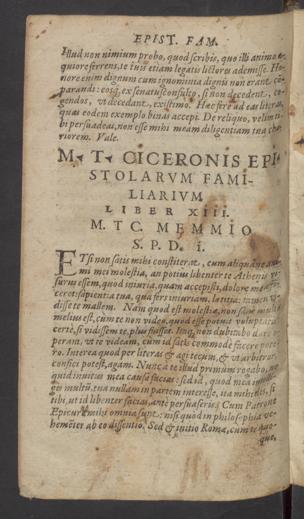 EPIST. FAM.
Illud non nimium probo, quod scribis, quo illi animo
quiore ferrent, te iniis etiam legatis lictores ademisse. Ho
nore enim dignum cum ignominia dignis non erant cō
parandi: eosq́; ex senatusconsulto, si non decedent, co
gendos, vt decedant, existimo. Haec ferè ad eas literas,
quas eodem exemplo binas accepi. De reliquo, velim ti
bi persuadeas, non esse mihi meam diligentiam tua cha
riorem. Vale.
M. T. CICERONIS EPI
STOLARVM FAMI-
LIARIVM
LIBER XIII.
M. T. C. MEMMIO
S. P. D. i.
ETsi non satis mihi constiterat, cum aliquáne ani
mi mei molestia, an potius libenter te Athenis vi
surus essem, quod iniuria, quam accepisti, dolore me affi
ceret: sapientia tua, qua fers iniuriam, laetitia: tamen vi
disse te mallem. Nam quod est molestiae, non sanè multò
melius est, cum te non video. quod esse potuit voluptatis,
certè, si vidissem te, plus fuisset. Itaq; non dubitabo dare o
peram, vt te videam, cum id satis commode facere pote
ro. Interea quod per literas & agi tecum, & vt arbitror,
confici potest, agam. Nunc à te illud primum rogabo, ne
quid inuitus mea causa facias: sed id, quod mea
multū, tua nullam in partem interesse, ita mihi des, si
tibi, ut id libenter facias, ante persuaseris. Cum Patrone
Epicureo mihi omnia sunt: nisi quod in philosophia ve
hementer ab eo dissentio. Sed & initio Romae, cum te quo-
que,